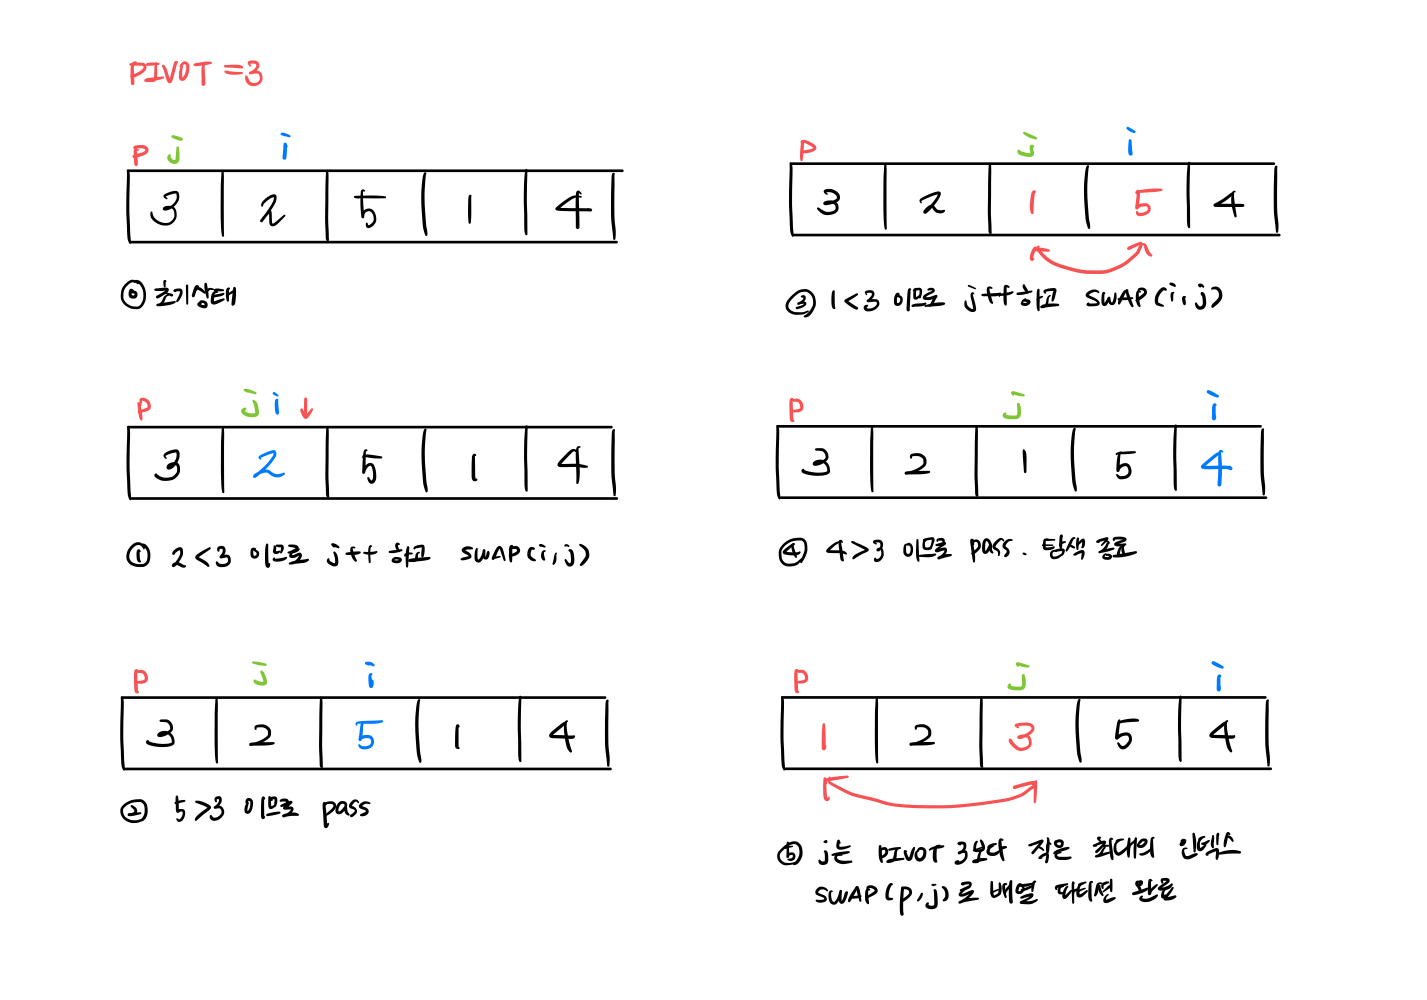 PIVOT =3
P j i
3 2 5 1 4
⓪ 초기상태
P j i ↓
3 2 5 1 4
① 2<3 이므로 j++ 하고 SWAP(i,j)
P j i
3 2 5 1 4
② 5>3 이므로 pass
P j i
3 2 1 5 4
③ 1<3 이므로 j++하고 SWAP(i,j)
P j i
3 2 1 5 4
④ 4>3 이므로 pass. 탐색 종료
P j i
1 2 3 5 4
⑤ j는 PIVOT 3보다 작은 최대의 인덱스
SWAP(p,j)로 배열 파티션 완료